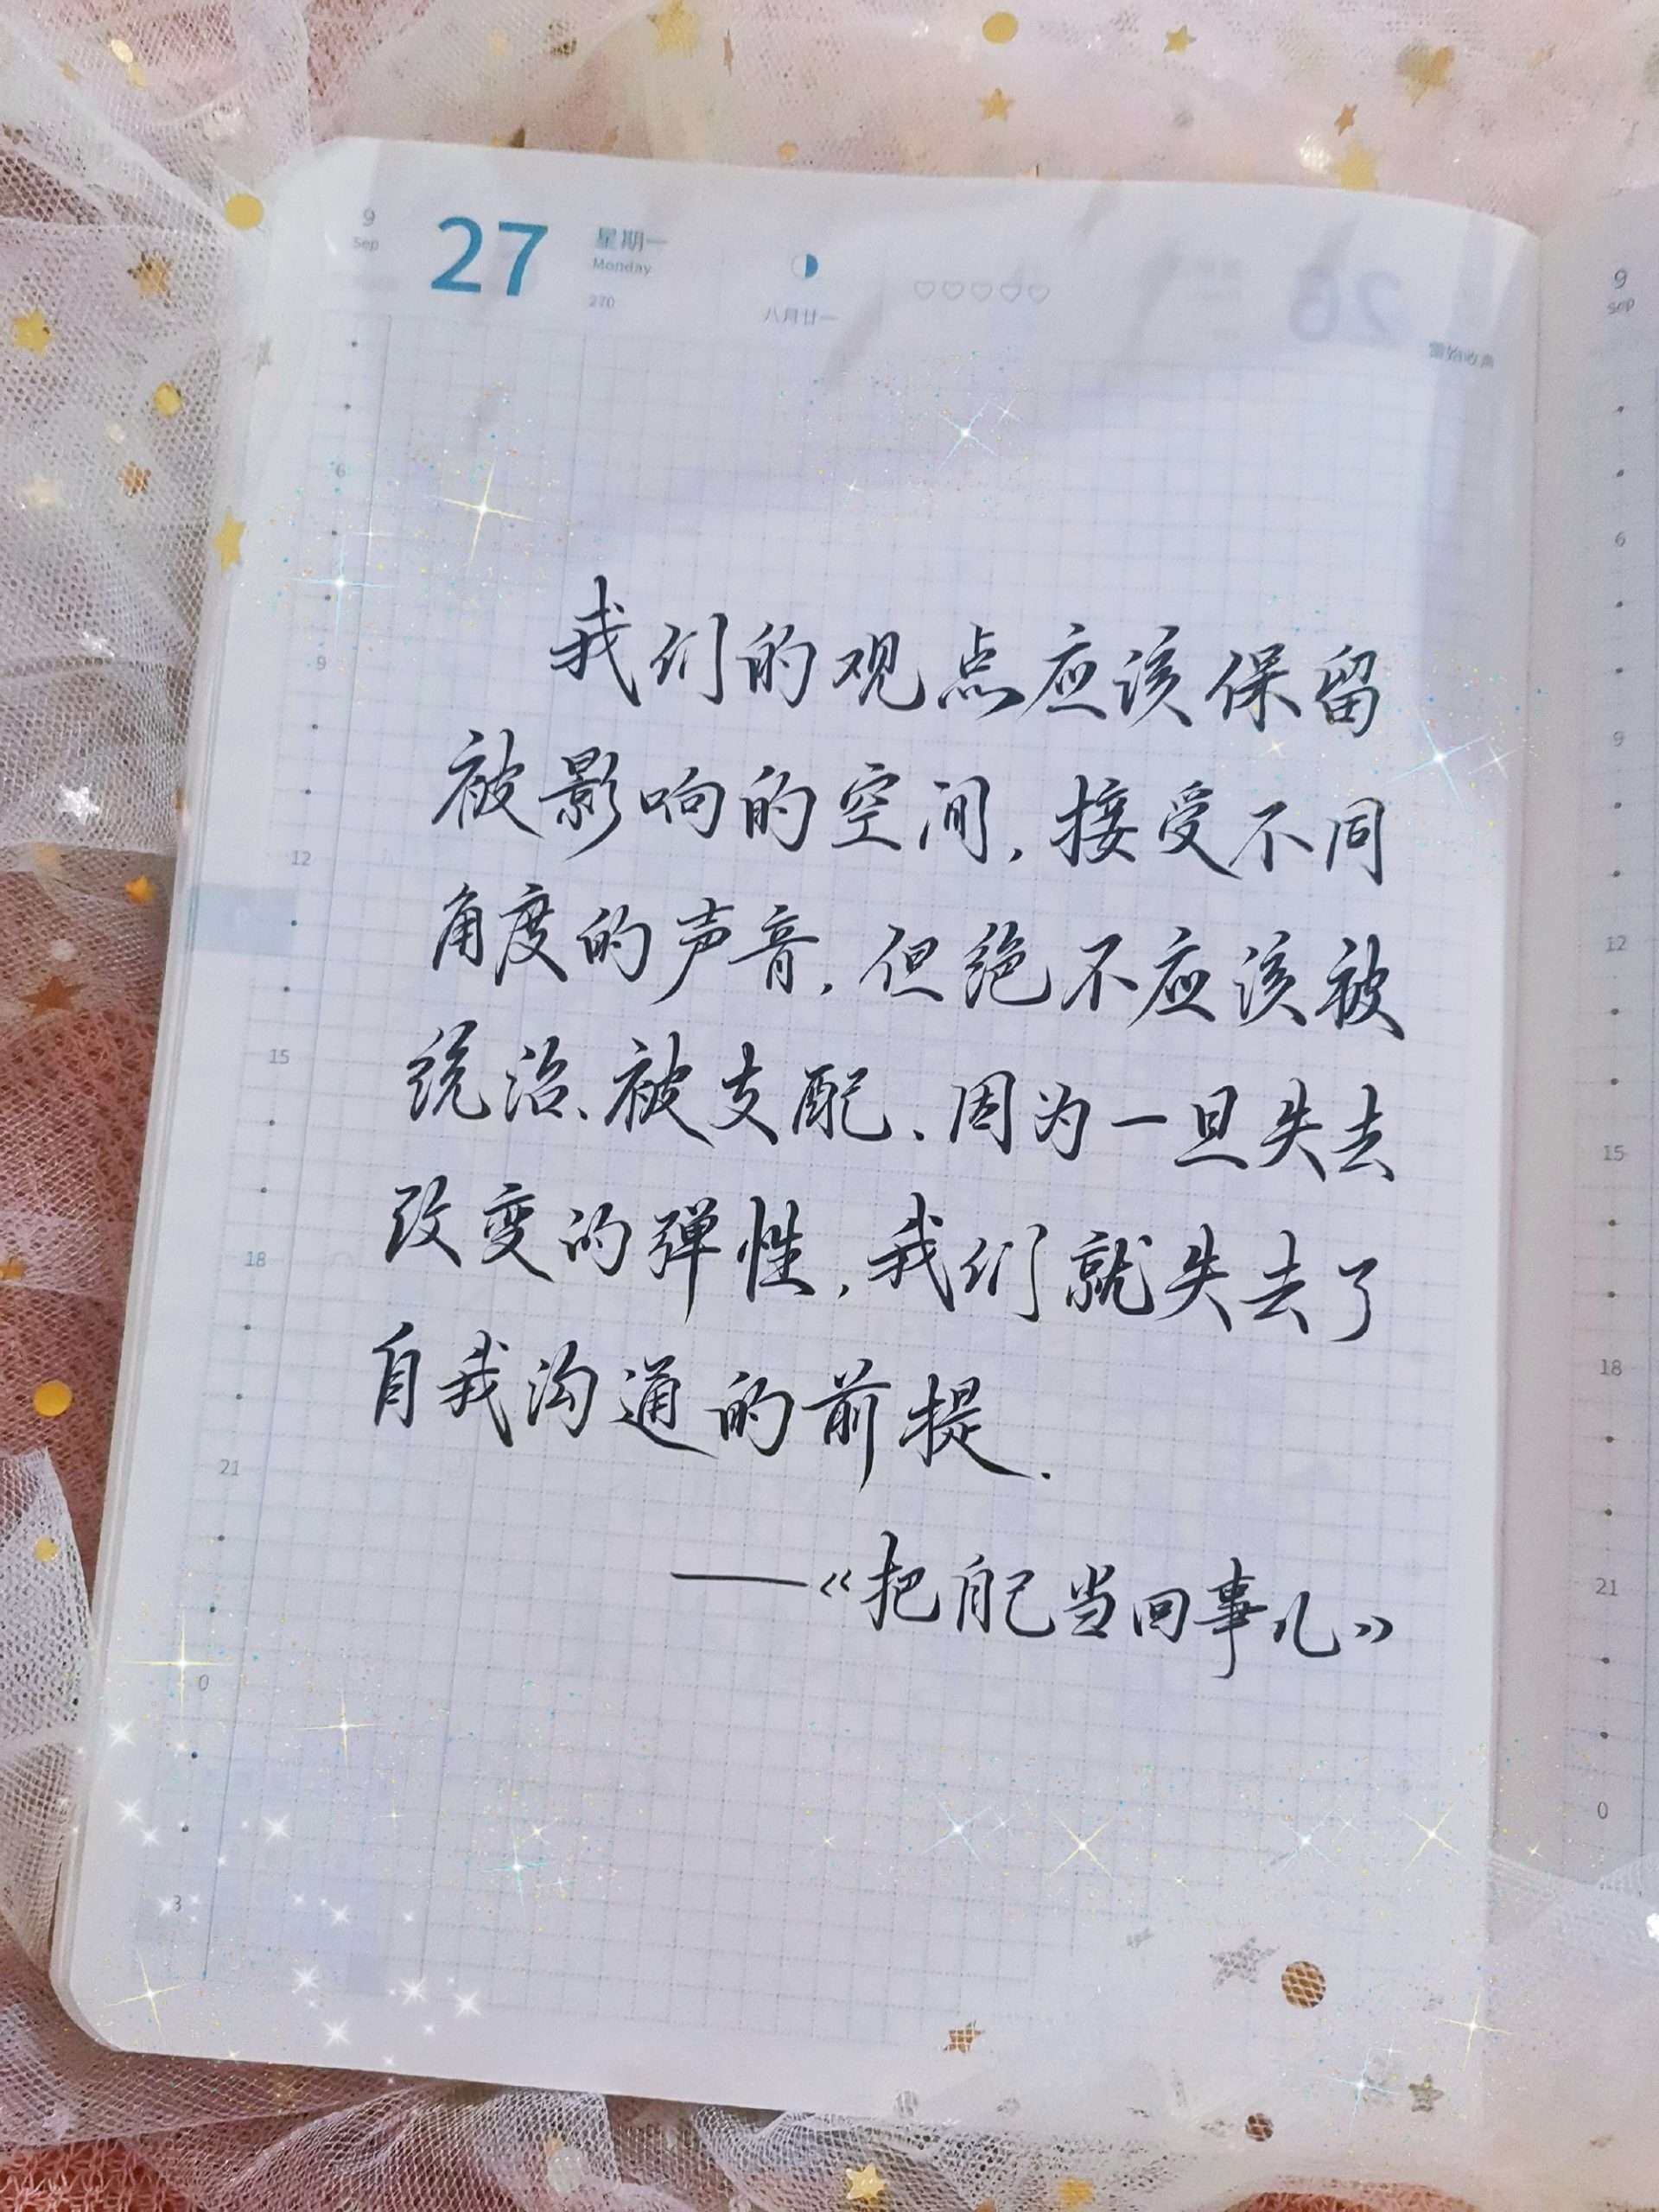 9
Sep
27
星期一
Monday
270
八月廿一
26
雷始收声
我们的观点应该保留
被影响的空间,接受不同
角度的声音,但绝不应该被
统治、被支配、因为一旦失去
改变的弹性,我们就失去了
自我沟通的前提.
——《把自己当回事儿》
6
9
12
15
18
21
0
3
9
Sep
6
9
12
15
18
21
0